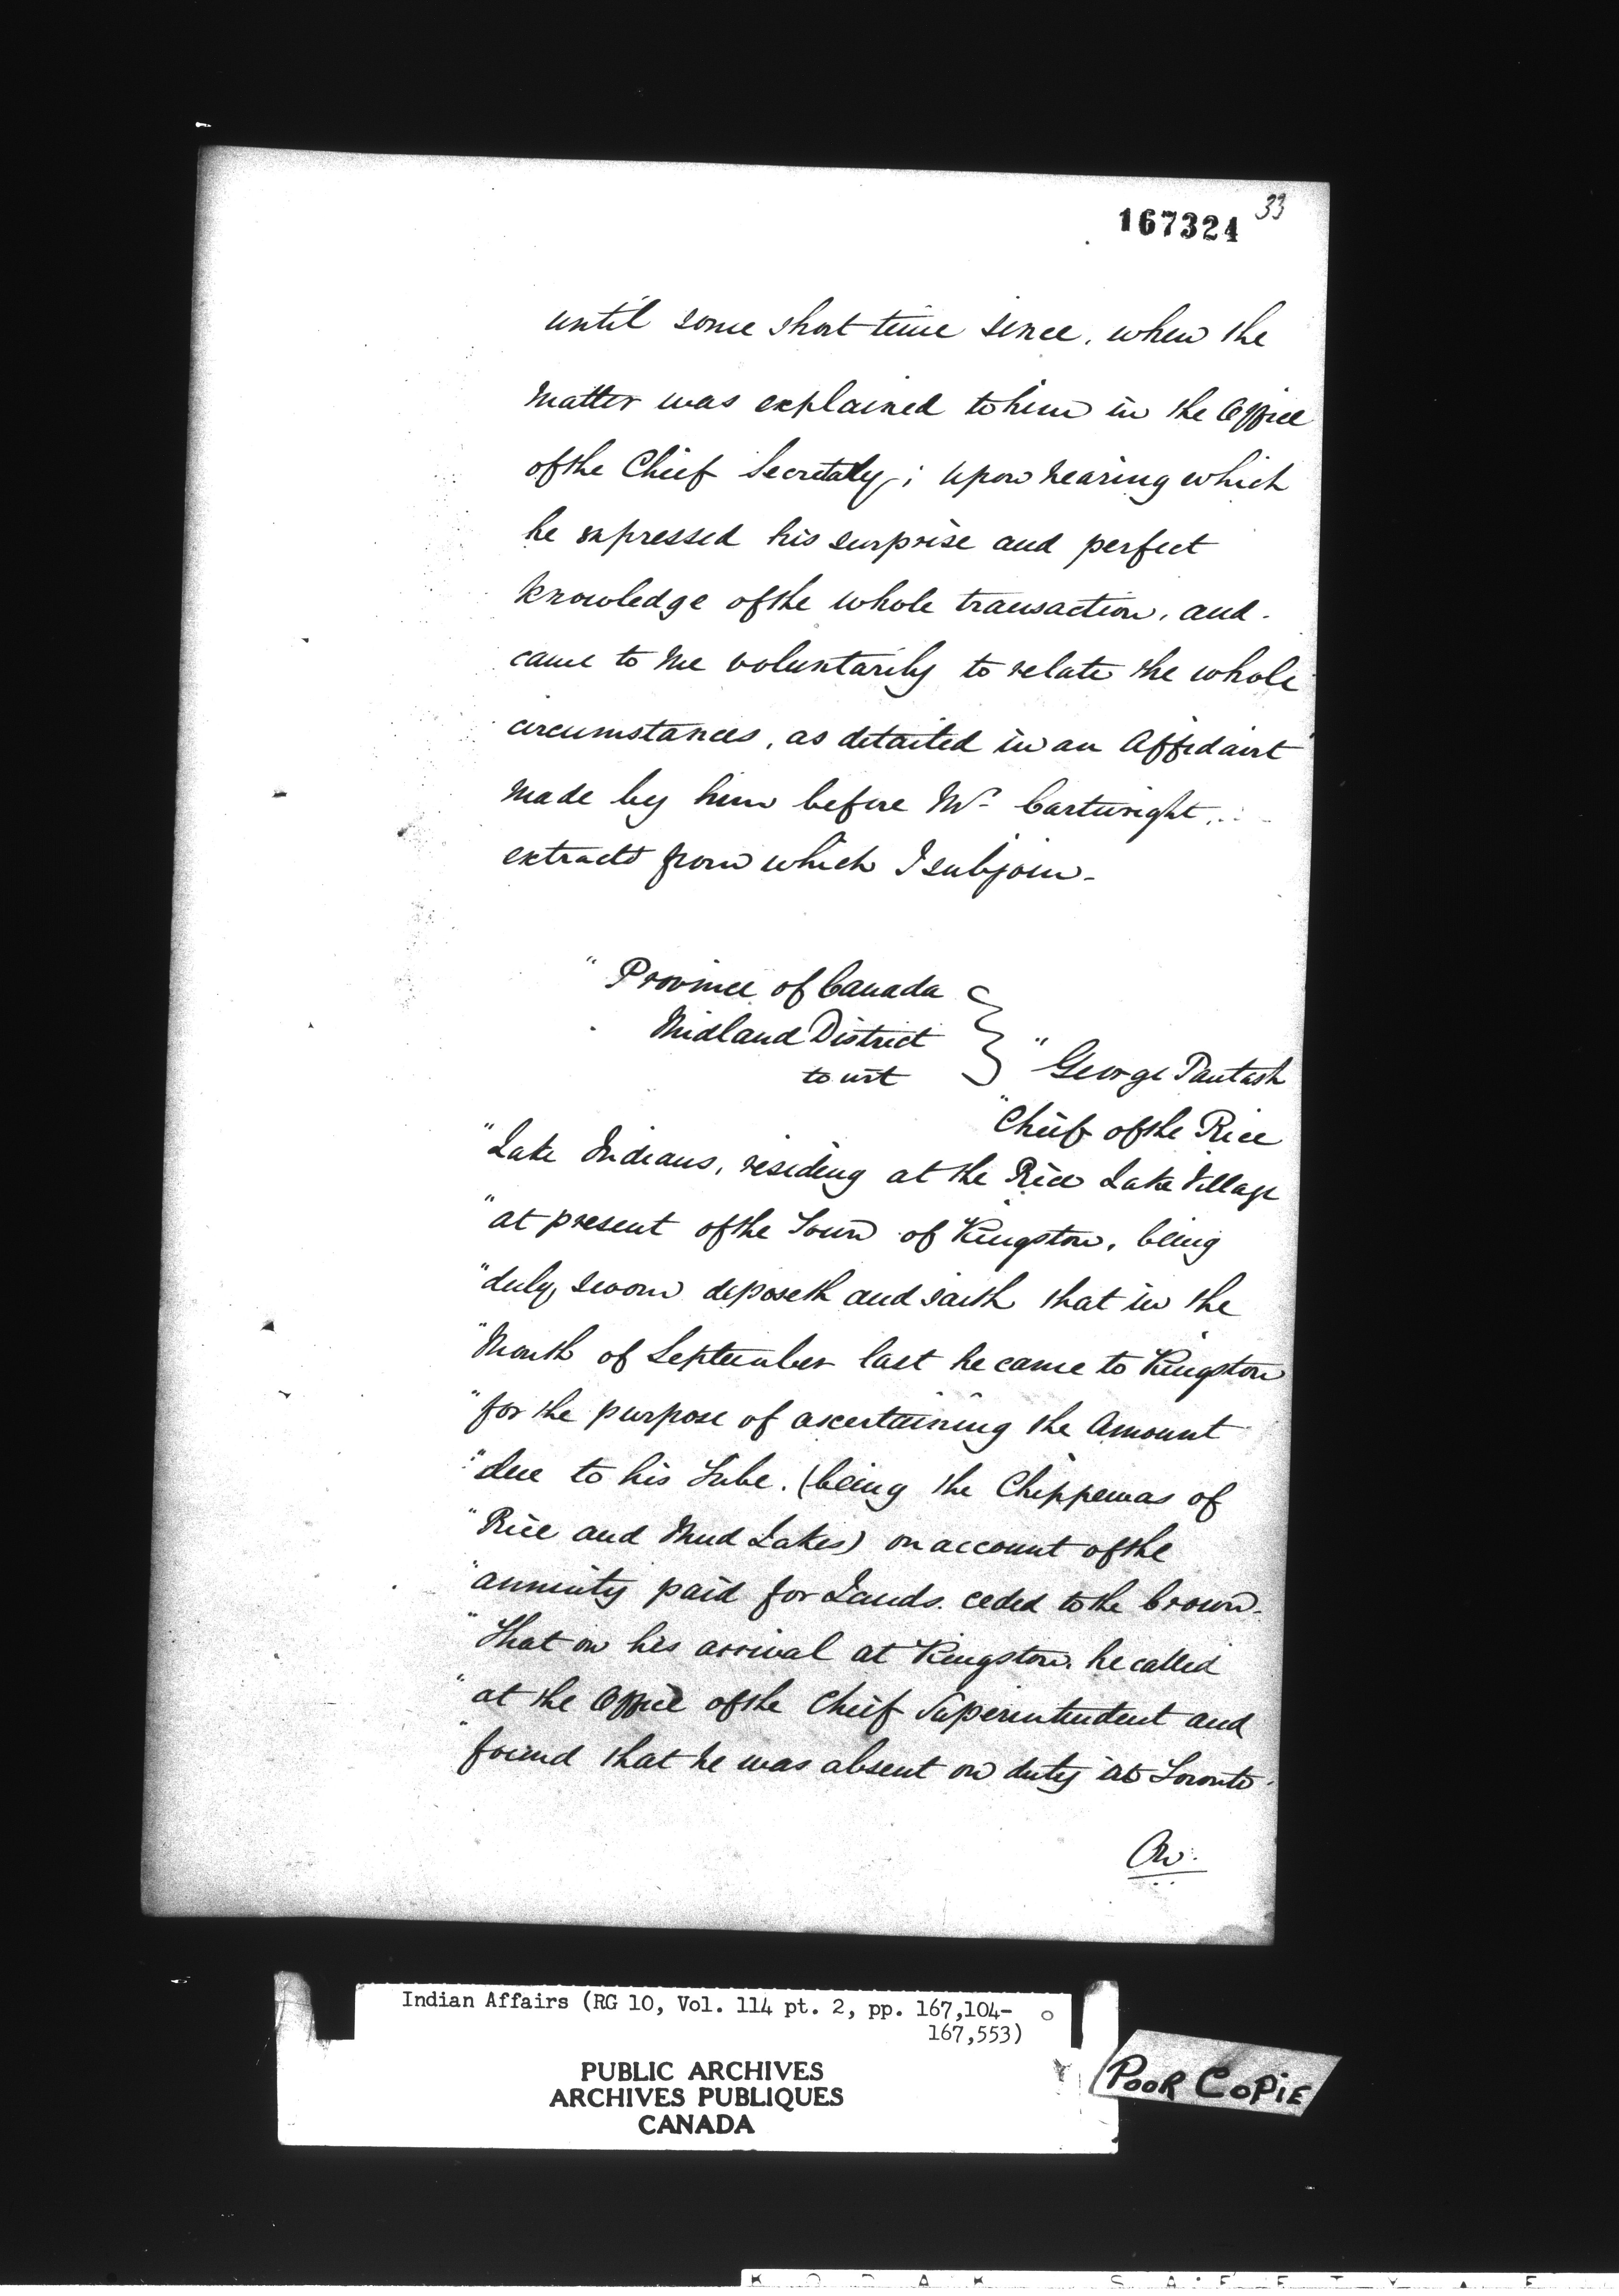 33
167324
until some short time since, when the
Matter was explained to him in the Office
of the Chief Secretary; upon hearing which
he expressed his surprise and perfect
knowledge of the whole transaction, and
came to me voluntarily to relate the whole
circumstances, as detailed in an Affidavit
made by him before Mr Cartwright,
extracts from which I subjoin -
" Province of Canada
Midland District
to wit
} " George Pautash
"Chief of the Rice
"Lake Indians, residing at the Rice Lake Village
"at present of the Town of Kingston, being
"duly sworn deposeth and saith that in the
"Month of September last he came to Kingston
"for the purpose of ascertaining the Amount
"due to his Tribe. (being the Chippewas of
"Rice and Mud Lakes) on account of the
"annuity paid for Lands ceded to the Crown.
"That on his arrival at Kingston he called
"at the Office of the Chief Superintendent and
"found that he was absent on duty at Toronto.
On
Indian Affairs (RG 10, Vol. 114 pt. 2, pp. 167,104-
167,553)
PUBLIC ARCHIVES
ARCHIVES PUBLIQUES
CANADA
POOR COPIE
KODAK SAFETY